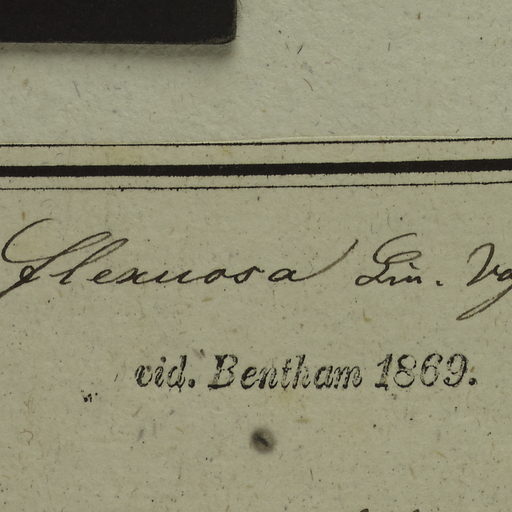 flexuosa Lin.
vid. Bentham 1869.